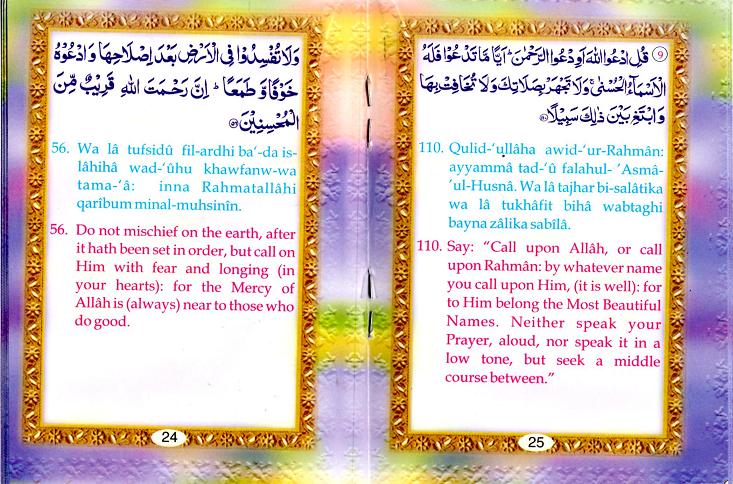 وَلَا تُفْسِدُوْا فِى الْاَرْضِ بَعْدَ اِصْلَاحِهَا وَادْعُوْهُ
خَوْفًا وَّ طَمَعًا ؕ اِنَّ رَحْمَتَ اللهِ قَرِيْبٌ مِّنَ
الْمُحْسِنِيْنَ ﴿۵۶﴾
56. Wa lâ tufsidû fil-ardhi ba‘-da is-
lâhihâ wad-‘ûhu khawfanw-wa
tama-‘â: inna Rahmatallâhi
qarîbum minal-muhsinîn.
56. Do not mischief on the earth, after
it hath been set in order, but call on
Him with fear and longing (in
your hearts): for the Mercy of
Allâh is (always) near to those who
do good.
24
﴿9﴾ قُلِ ادْعُوا اللهَ اَوِ ادْعُوا الرَّحْمٰنَ ؕ اَيًّا مَّا تَدْعُوْا فَلَهُ
الْاَسْمَآءُ الْحُسْنٰى ۚ وَلَا تَجْهَرْ بِصَلَاتِكَ وَلَا تُخَافِتْ بِهَا
وَابْتَغِ بَيْنَ ذٰلِكَ سَبِيْلًا ﴿۱۱۰﴾
110. Qulid-‘ullâha awid-‘ur-Rahmân:
ayyammâ tad-‘û falahul- ’Asmâ-
’ul-Husnâ. Wa lâ tajhar bi-salâtika
wa lâ tukhâfit bihâ wabtaghi
bayna zâlika sabîlâ.
110. Say: “Call upon Allâh, or call
upon Rahmân: by whatever name
you call upon Him, (it is well): for
to Him belong the Most Beautiful
Names. Neither speak your
Prayer, aloud, nor speak it in a
low tone, but seek a middle
course between.”
25